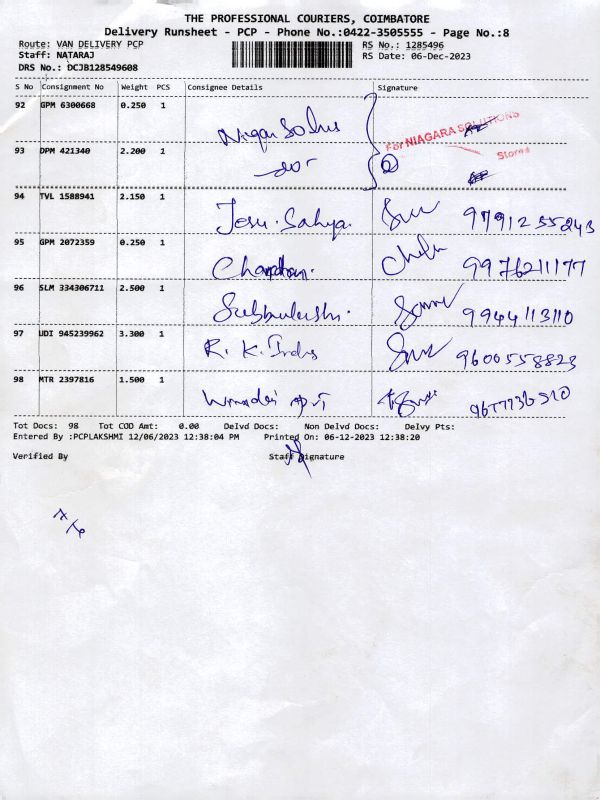 THE PROFESSIONAL COURIERS, COIMBATORE
Delivery Runsheet - PCP - Phone No.:0422-3505555 - Page No.:8
Route: VAN DELIVERY PCP
RS No.: 1285496
Staff: NATARAJ
RS Date: 06-Dec-2023
DRS No.: DCJB128549608
S No Consignment No Weight PCS Consignee Details Signature
92 GPM 6300668 0.250 1
For NIAGARA SOLUTIONS
93 DPM 421340 2.200 1
Stores
94 TVL 1588941 2.150 1
Jesu. Sahya. 9791255243
95 GPM 2072359 0.250 1
Chandran. 9976211177
96 SLM 334306711 2.500 1
9944113110
97 UDI 945239962 3.300 1
R. K. Indus 9600558823
98 MTR 2397816 1.500 1
Tot Docs: 98 Tot COD Amt: 0.00 Delvd Docs: Non Delvd Docs: Delvy Pts:
Entered By :PCPLAKSHMI 12/06/2023 12:38:04 PM Printed On: 06-12-2023 12:38:20
Verified By Staff Signature